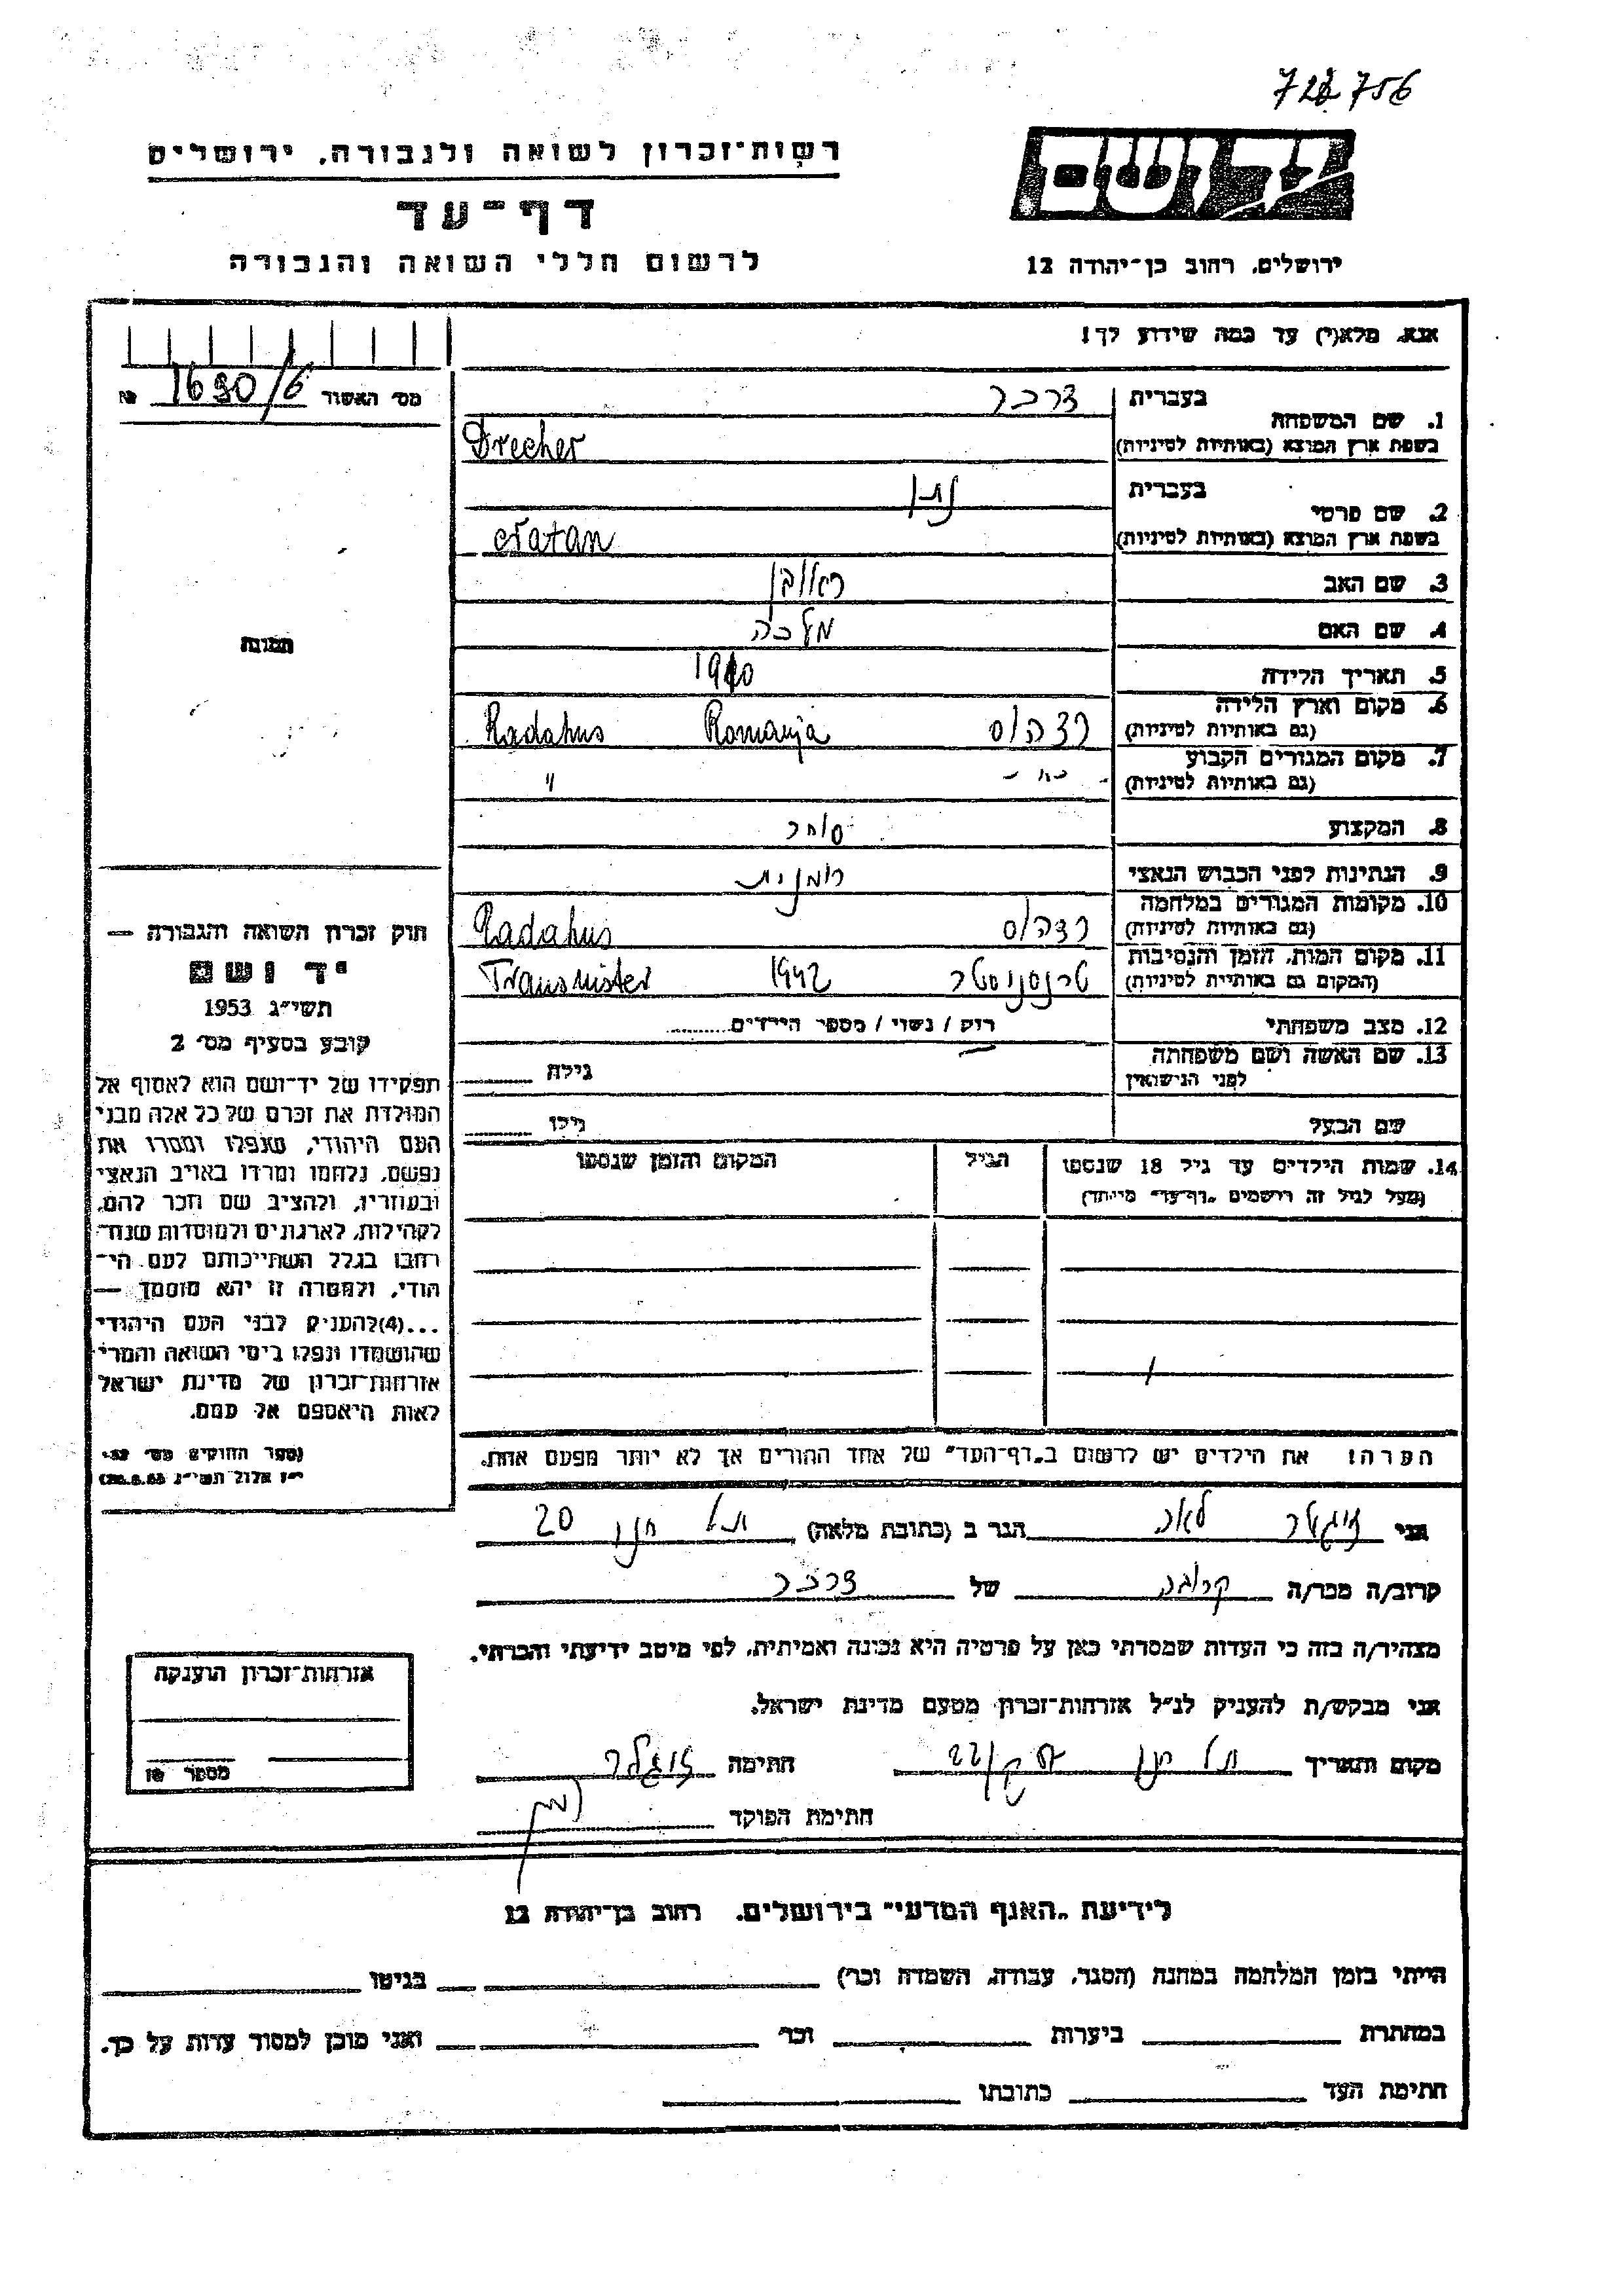 728756
רשות־זכרון לשואה ולגבורה, ירושלים
דף־עד
לרשום חללי השואה והגבורה
יד ושם
ירושלים, רחוב בן־יהודה 12
אנא, מלא(י) עד כמה שידוע לך!
מס׳ האשור 1690/6 №
1. שם המשפחה
בעברית דרכר
בשפת ארץ המוצא (באותיות לטיניות) Drecher
2. שם פרטי
בעברית נתן
בשפת ארץ המוצא (באותיות לטיניות) Natan
3. שם האב ראובן
4. שם האם מלכה
5. תאריך הלידה 1910
6. מקום וארץ הלידה
(גם באותיות לטיניות) רדהוס Romanja Radahus
7. מקום המגורים הקבוע
(גם באותיות לטיניות) - " - "
8. המקצוע סוחר
9. הנתינות לפני הכבוש הנאצי רומנית
10. מקומות המגורים במלחמה
(גם באותיות לטיניות) רדהוס Radahus
11. מקום המות, הזמן והנסיבות
(המקום גם באותיות לטיניות) טרנסניסטר 1942 Transnister
12. מצב משפחתי רוק / נשוי / מספר הילדים..........
13. שם האשה ושם משפחתה
לפני הנישואין גילה
שם הבעל גילו
14. שמות הילדים עד גיל 18 שנספו
(מעל לגיל זה רושמים „דף־עד״ מיוחד)
הגיל
המקום והזמן שנספו
הערה! את הילדים יש לרשום ב„דף־העד״ של אחד ההורים אך לא יותר מפעם אחת.
תמונה
חוק זכרון השואה והגבורה —
יד ושם
תשי״ג 1953
קובע בסעיף מס׳ 2
תפקידו של יד־ושם הוא לאסוף אל
המולדת את זכרם של כל אלה מבני
העם היהודי, שנפלו ומסרו את
נפשם, נלחמו ומרדו באויב הנאצי
ובעוזריו, ולהציב שם וזכר להם,
לקהילות, לארגונים ולמוסדות שנח־
רבו בגלל השתייכותם לעם הי־
הודי, ולמטרה זו יהא מוסמך —
...(4)להעניק לבני העם היהודי
שהושמדו ונפלו בימי השואה והמרי
אזרחות־זכרון של מדינת ישראל
לאות היאספם אל עמם.
(ספר החוקים מס׳ 132
י״ז אלול תשי״ג 28.8.53)
אני לאה הגר ב (כתובת מלאה) תל חנן 20
קרוב/ה מכר/ה קרובה של דרכר
מצהיר/ה בזה כי העדות שמסרתי כאן על פרטיה היא נכונה ואמיתית, לפי מיטב ידיעתי והכרתי.
אני מבקש/ת להעניק לנ״ל אזרחות־זכרון מטעם מדינת ישראל.
מקום ותאריך תל חנן חתימה
חתימת הפוקד
אזרחות־זכרון הוענקה
מספר
לידיעת „האגף המדעי״ בירושלים, רחוב בן־יהודה 12
הייתי בזמן המלחמה במחנה (הסגר, עבודה, השמדה וכו׳) בגיטו
במחתרת ביערות וכו׳ ואני מוכן למסור עדות על כך.
חתימת העד כתובתו